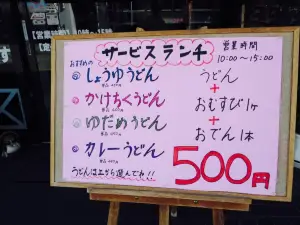 サービスランチ
営業時間
10:00～15:00
おすすめの
しょうゆうどん
かけちくうどん
ゆだめうどん
カレーうどん
うどんは上から選んでネ!!
うどん
+
おむすび1ヶ
+
おでん1本
500円